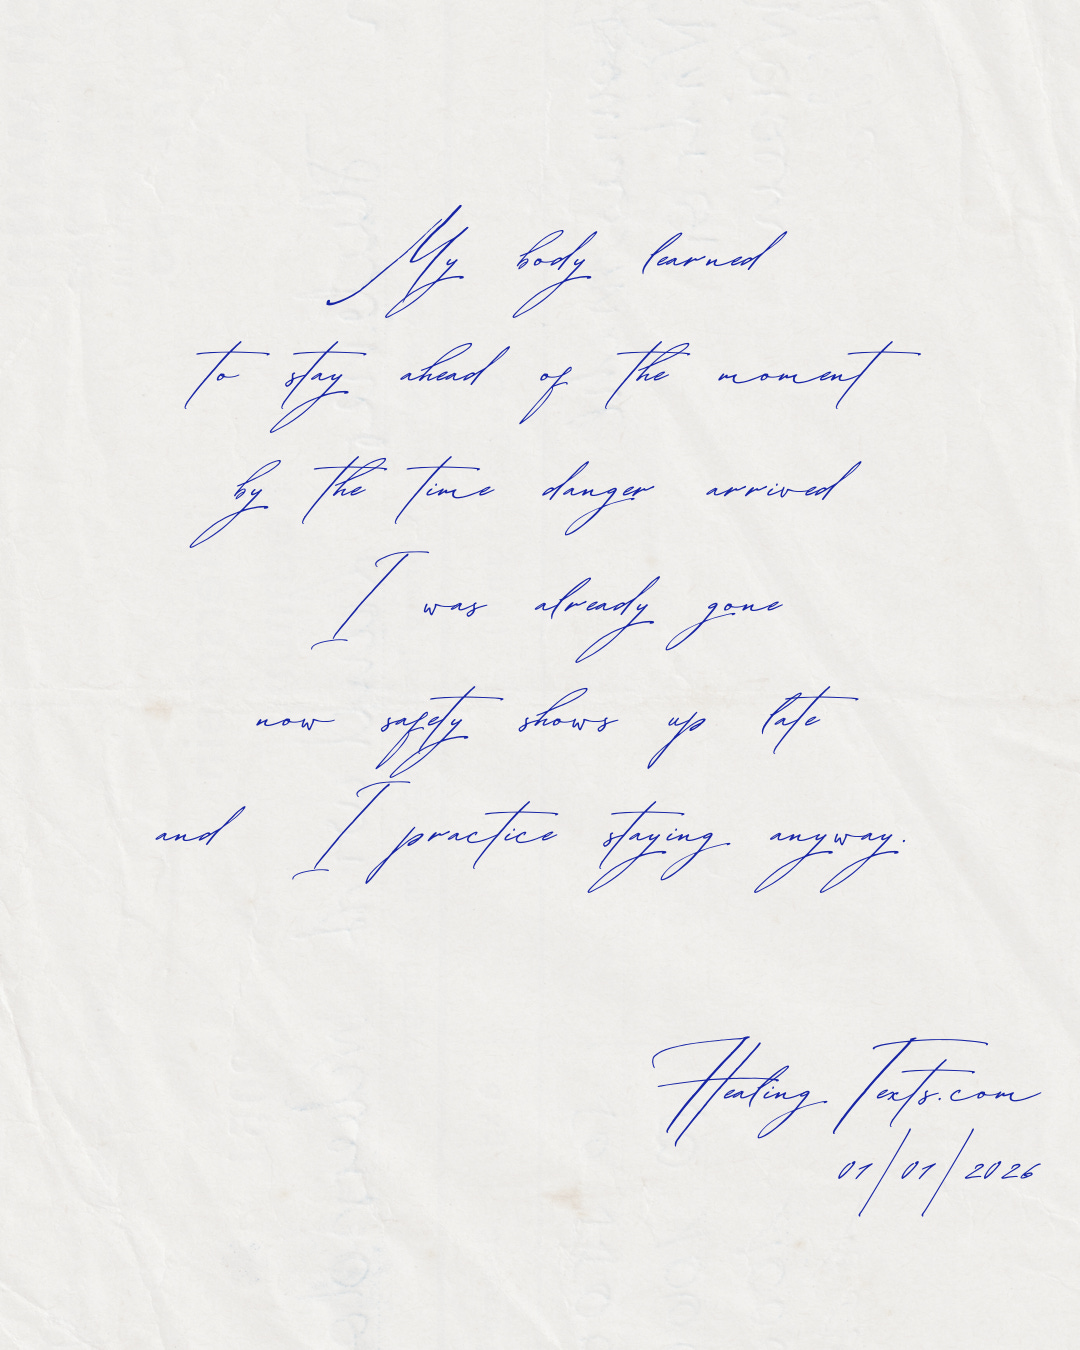 My body learned
to stay ahead of the moment
by the time danger arrived
I was already gone
now safety shows up late
and I practice staying anyway.
Healing Texts.com
01/01/2026